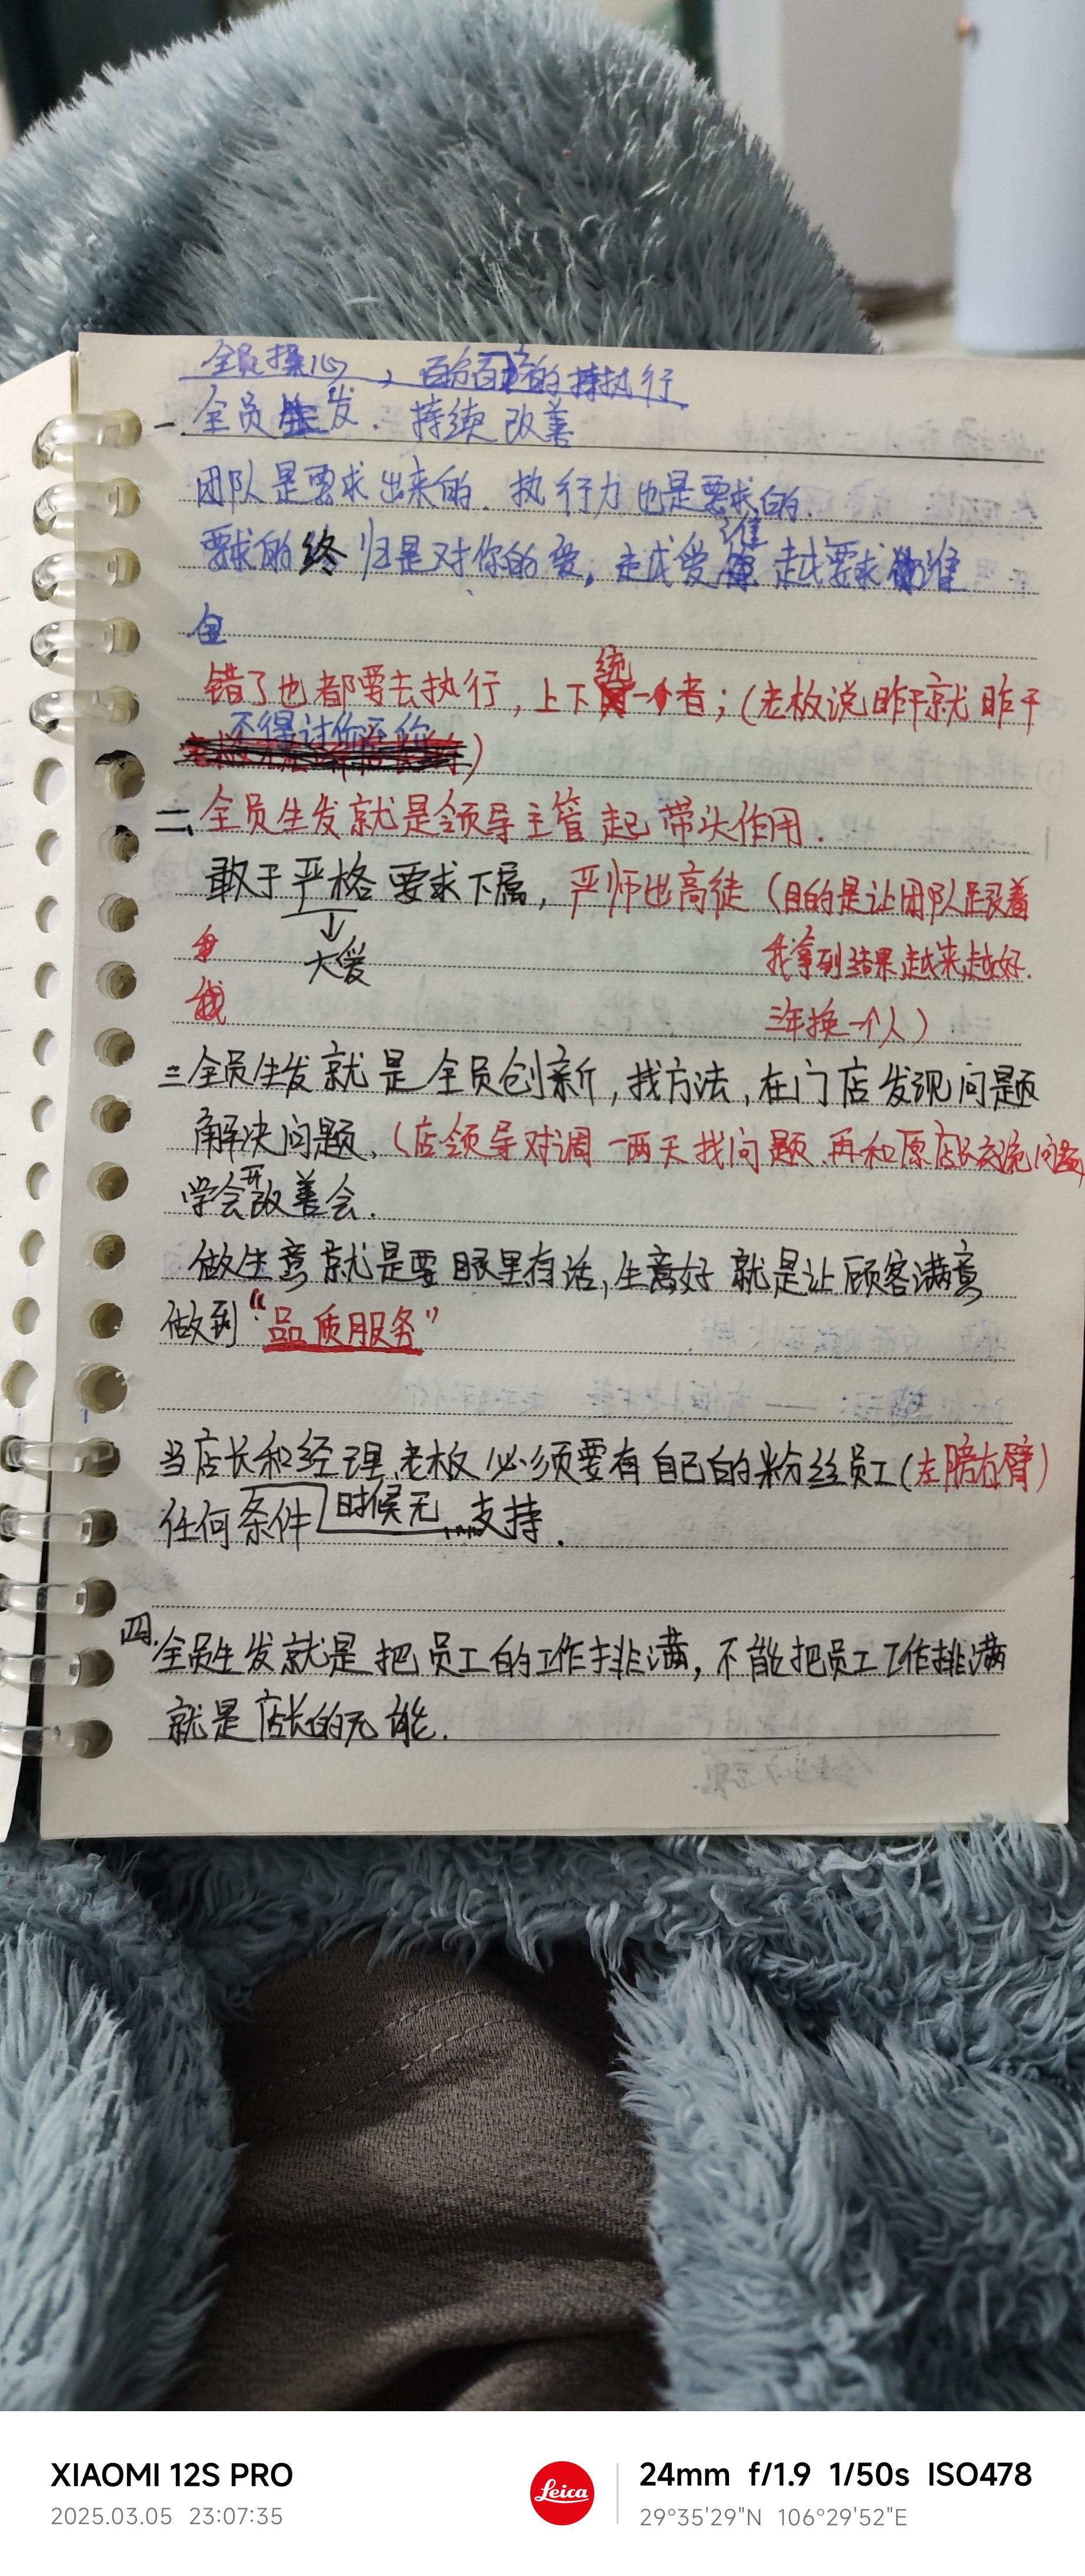 全员操心，百分百的执行
一.全员生发.持续改善
团队是要求出来的.执行力也是要求的.
要求的终归是对你的爱,走成爱谁越要求谁
全
错了也都要去执行,上下统一者;(老板说昨干就昨干
不得讨价还价)
二、全员生发就是领导主管起带头作用.
敢于严格要求下属,严师出高徒(目的是让团队是跟着
大爱 我拿到结果,越来越好.
我 三年换一个人)
三全员生发就是全员创新,找方法,在门店发现问题
解决问题,(店领导对调一两天找问题.再和原店长交流问题
学会开改善会.
做生意就是要眼里有活,生意好就是让顾客满意
做到“品质服务”
当店长和经理.老板必须要有自己的粉丝员工(左膀右臂)
任何条件时候无....支持.
四.全员生发就是把员工的工作排满,不能把员工工作排满
就是店长的无能.
XIAOMI 12S PRO
2025.03.05 23:07:35
Leica
24mm f/1.9 1/50s ISO478
29°35'29"N 106°29'52"E